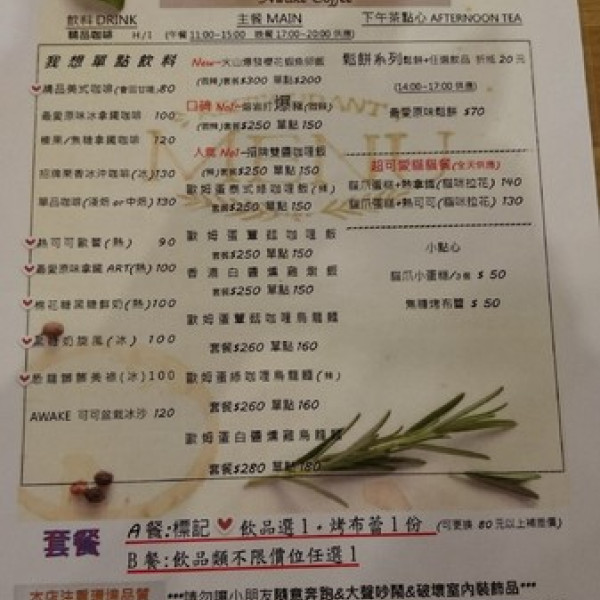 Awake Coffee
飲料 DRINK
精品咖啡 H/I
主餐 MAIN
(午餐 11:00~15:00 晚餐 17:00~20:00 供應)
下午茶點心 AFTERNOON TEA
我想單點飲料
精品美式咖啡(會回甘哦)80
最愛原味冰拿鐵咖啡 100
榛果/焦糖拿鐵咖啡 120
招牌果香冰沖咖啡(冰)130
單品咖啡(淺焙 or 中焙)130
熱可可歐蕾(熱) 90
最愛原味拿鐵 ART(熱)100
棉花糖黑糖鮮奶(熱)100
黑糖奶旋風(冰) 100
恐龍髒髒美祿(冰)100
AWAKE 可可盆栽冰沙 120
New-火山爆發櫻花蝦魚卵飯
(微辣)套餐$300 單點$200
口碑 No1-熔岩打拋豬(微辣)
爆
(微辣)套餐$250 單點 150
人氣 No1-招牌雙醬咖哩飯
(辣)套餐$250 單點 150
歐姆蛋泰式綠咖哩飯(辣)
套餐$250 單點 150
歐姆蛋蕈菇咖哩飯
套餐$250 單點 150
香港白醬燻雞燉飯
套餐$250 單點 150
歐姆蛋蕈菇咖哩烏龍麵
套餐$260 單點 160
歐姆蛋綠咖哩烏龍麵(辣)
套餐$260 單點 160
歐姆蛋白醬燻雞烏龍麵
套餐$280 單點 180
RESTAURANT
MENU
鬆餅系列 鬆餅+任選飲品 折抵 20 元
(14:00~17:00供應)
最愛原味鬆餅 $70
超可愛貓貓餐(全天供應)
貓爪蛋糕+熱拿鐵(貓咪拉花) 140
貓爪蛋糕+熱可可(貓咪拉花) 130
小點心
貓爪小蛋糕/2個 $ 50
焦糖烤布蕾 $ 50
套餐
A 餐:標記 飲品選 1,烤布蕾 1 份 (可更換 80 元以上補差價)
B 餐:飲品類不限價位任選 1
本店注重環境品質
***請勿讓小朋友隨意奔跑&大聲吵鬧&破壞室內裝飾品***